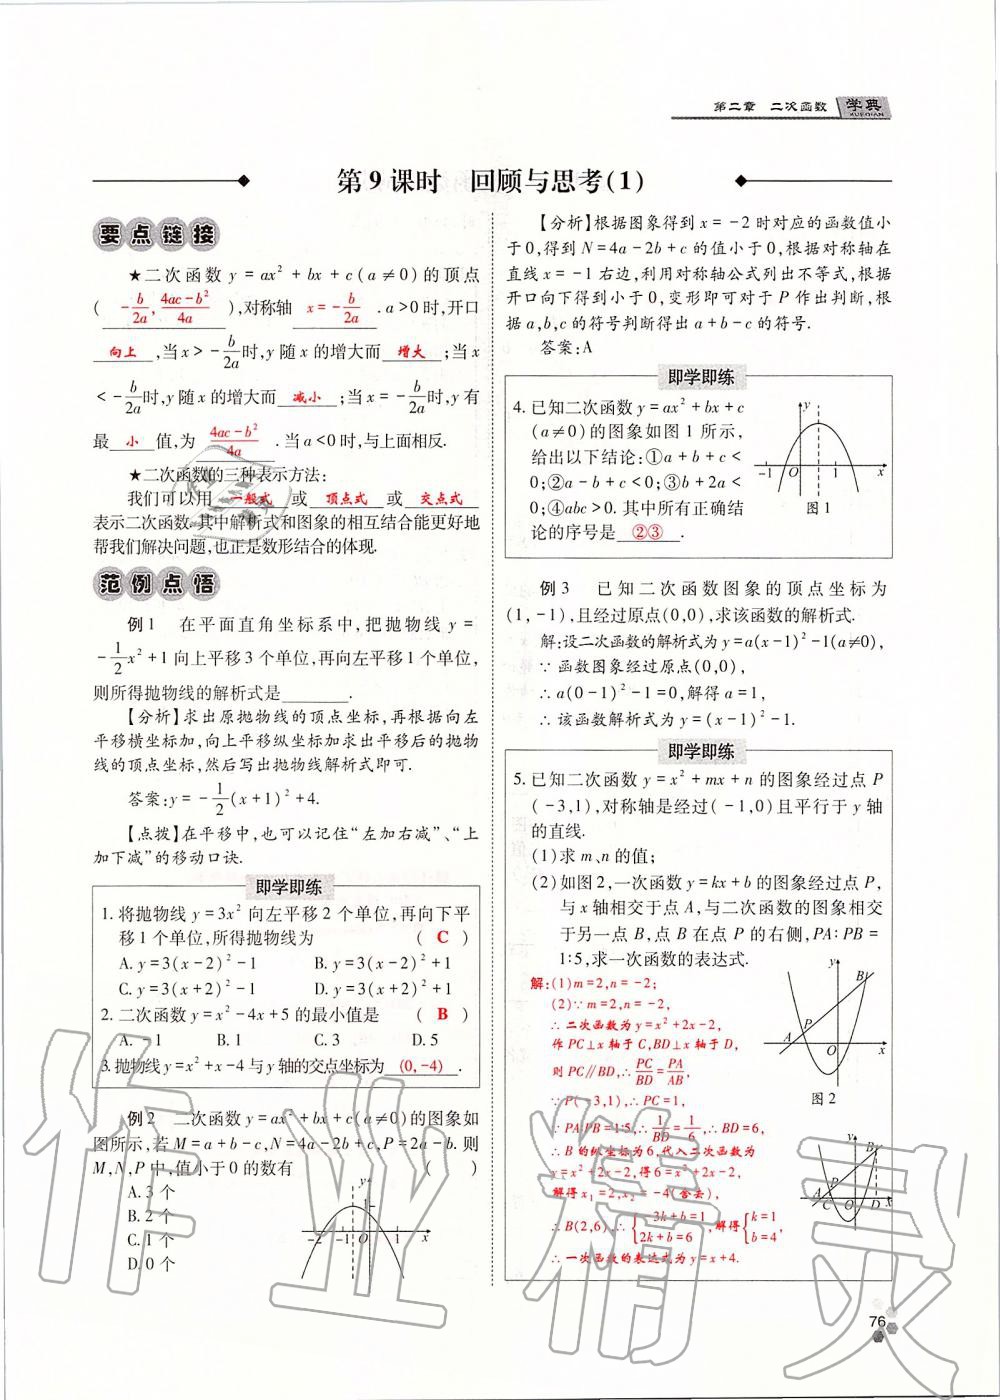 第二章 二次函数 学典
XUEDIAN
第9课时 回顾与思考(1)
要点链接
★二次函数 y=ax²+bx+c(a≠0)的顶点
( -b/2a, (4ac-b²)/4a ),对称轴 x=-b/2a .a>0时,开口
向上 ,当x>-b/2a时,y随x的增大而 增大 ;当x
<-b/2a时,y随x的增大而 减小 ;当x=-b/2a时,y有
最 小 值,为 (4ac-b²)/4a .当a<0时,与上面相反.
★二次函数的三种表示方法:
我们可以用 一般式 或 顶点式 或 交点式
表示二次函数.其中解析式和图象的相互结合能更好地
帮我们解决问题,也正是数形结合的体现.
范例点悟
例1 在平面直角坐标系中,把抛物线y=
-1/2x²+1向上平移3个单位,再向左平移1个单位,
则所得抛物线的解析式是______.
【分析】求出原抛物线的顶点坐标,再根据向左
平移横坐标加,向上平移纵坐标加求出平移后的抛物
线的顶点坐标,然后写出抛物线解析式即可.
答案:y=-1/2(x+1)²+4.
【点拨】在平移中,也可以记住“左加右减”、“上
加下减”的移动口诀.
即学即练
1.将抛物线y=3x²向左平移2个单位,再向下平
移1个单位,所得抛物线为 ( C )
A.y=3(x-2)²-1 B.y=3(x-2)²+1
C.y=3(x+2)²-1 D.y=3(x+2)²+1
2.二次函数y=x²-4x+5的最小值是 ( B )
A.-1 B.1 C.3 D.5
3.抛物线y=x²+x-4与y轴的交点坐标为 (0,-4) .
例2 二次函数y=ax²+bx+c(a≠0)的图象如
图所示,若M=a+b-c,N=4a-2b+c,P=2a-b.则
M,N,P中,值小于0的数有 ( )
A.3个
B.2个
C.1个
D.0个
y
-2 -1 0 1 x
【分析】根据图象得到x=-2时对应的函数值小
于0,得到N=4a-2b+c的值小于0,根据对称轴在
直线x=-1右边,利用对称轴公式列出不等式,根据
开口向下得到小于0,变形即可对于P作出判断,根
据a,b,c的符号判断得出a+b-c的符号.
答案:A
即学即练
4.已知二次函数y=ax²+bx+c
(a≠0)的图象如图1所示,
给出以下结论:①a+b+c<
0;②a-b+c<0;③b+2a<
0;④abc>0.其中所有正确结
论的序号是 ②③ .
y
-1 O 1 x
图1
例3 已知二次函数图象的顶点坐标为
(1,-1),且经过原点(0,0),求该函数的解析式.
解:设二次函数的解析式为y=a(x-1)²-1(a≠0),
∵函数图象经过原点(0,0),
∴a(0-1)²-1=0,解得a=1,
∴该函数解析式为y=(x-1)²-1.
即学即练
5.已知二次函数y=x²+mx+n的图象经过点P
(-3,1),对称轴是经过(-1,0)且平行于y轴
的直线.
(1)求m、n的值;
(2)如图2,一次函数y=kx+b的图象经过点P,
与x轴相交于点A,与二次函数的图象相交
于另一点B,点B在点P的右侧,PA:PB=
1:5,求一次函数的表达式.
解:(1)m=2,n=-2;
(2)∵m=2,n=-2,
∴二次函数为y=x²+2x-2,
作PC⊥x轴于C,BD⊥x轴于D,
则PC∥BD,∴PC/BD=PA/AB,
∵P(-3,1),∴PC=1,
∵PA:PB=1:5,∴1/BD=1/6,∴BD=6,
∴B的纵坐标为6,代入二次函数为
y=x²+2x-2,得6=x²+2x-2,
解得x₁=2,x₂=-4(舍去),
∴B(2,6),∴{-3k+b=1 2k+b=6,解得{k=1 b=4,
∴一次函数的表达式为y=x+4.
y B
P
A O x
图2
y B
P
A C O D x
76
作业精灵